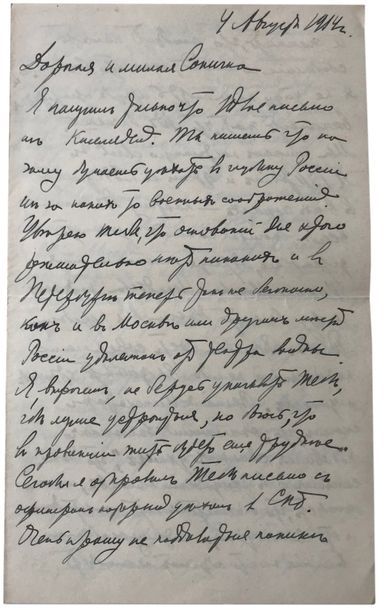 4 Августа 1914 г.
Дорогая и милая Сонечка
Я получил только что твое письмо
из . Ты пишешь что на
зиму думаешь уехать в глубину России
из за каких то военных соображений.
Уверяю тебя, что оснований для этого
решительно нет никаких и в
Петербурге теперь так же безопасно,
как и в Москве или других местах
России удаленных от театра войны.
Я, впрочем, не берусь учить тебя,
как лучше устроиться, но боюсь, что
в провинции жить будет еще труднее.
Сегодня я отправил тебе письмо с
офицером который уехал в СПб.
Очень прошу не поддаваться панике